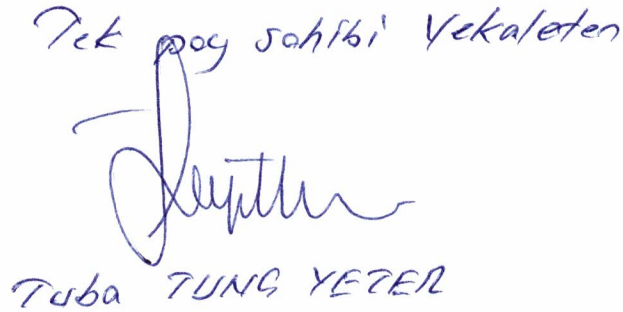 Tek pay sahibi Vekaleten
Tuba TUNÇ YETER